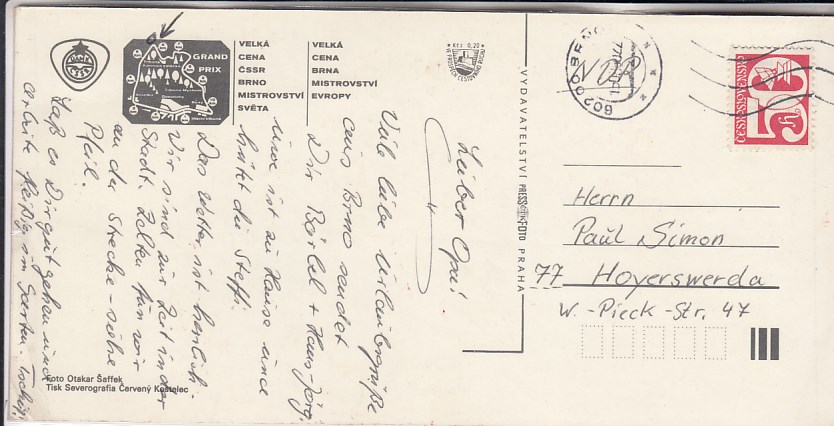 GRAND
PRIX
VELKÁ
CENA
ČSSR
BRNO
MISTROVSTVÍ
SVĚTA
VELKÁ
CENA
BRNA
MISTROVSTVÍ
EVROPY
Kčs 0,20
VYDAVATELSTVÍ PRESSFOTO PRAHA
602 00 BRNO
ČESKOSLOVENSKO
50 h
Lieber Opa!
Viele liebe Urlaubsgrüße
aus Brno sendet
Dir Bärbel + Hans-Jörg.
ist zu Hause und
hütet die Steffi.
Das Wetter ist herrlich.
Wir sind zur Zeit in der
Stadt. Zelten tun wir
an der Strecke - siehe
Pfeil.
Laß es Dir gut gehen und
arbeite fleißig im Garten. Tschüß!
Herrn
Paul Simon
77 Hoyerswerda
W.-Pieck-Str. 47
Foto Otakar Šaffek
Tisk Severografia Červený Kostelec